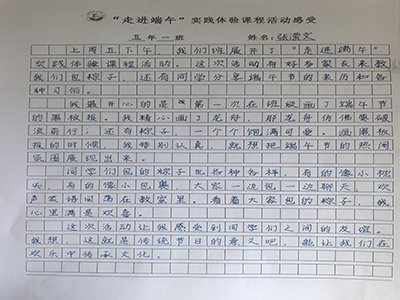 “走进端午”实践体验课程活动感受
五年一班 姓名：张潆文
上周五下午，我们班展开了“走进端午”
实践体验课程活动。这次活动有好多家长来教
我们包粽子，还有同学分享端午节的来历和各
种习俗。
我最开心的是第一次在班级画了端午节
的黑板报。我精心画了龙舟，那龙舟仿佛要破
浪前行；还有粽子，一个个饱满可爱。画黑板
报的时候，我特别认真，就想把端午节的热闹
氛围展现出来。
同学们包的粽子也各种各样，有的像小枕
头，有的像小包裹，大家一边包一边聊天，欢
声笑语回荡在教室里。看着大家包的粽子，我
心里满是欢喜。
这次活动让我感受到同学们之间的友谊。
我想，这就是传统节日的意义吧，能让我们在
欢乐中传承文化。